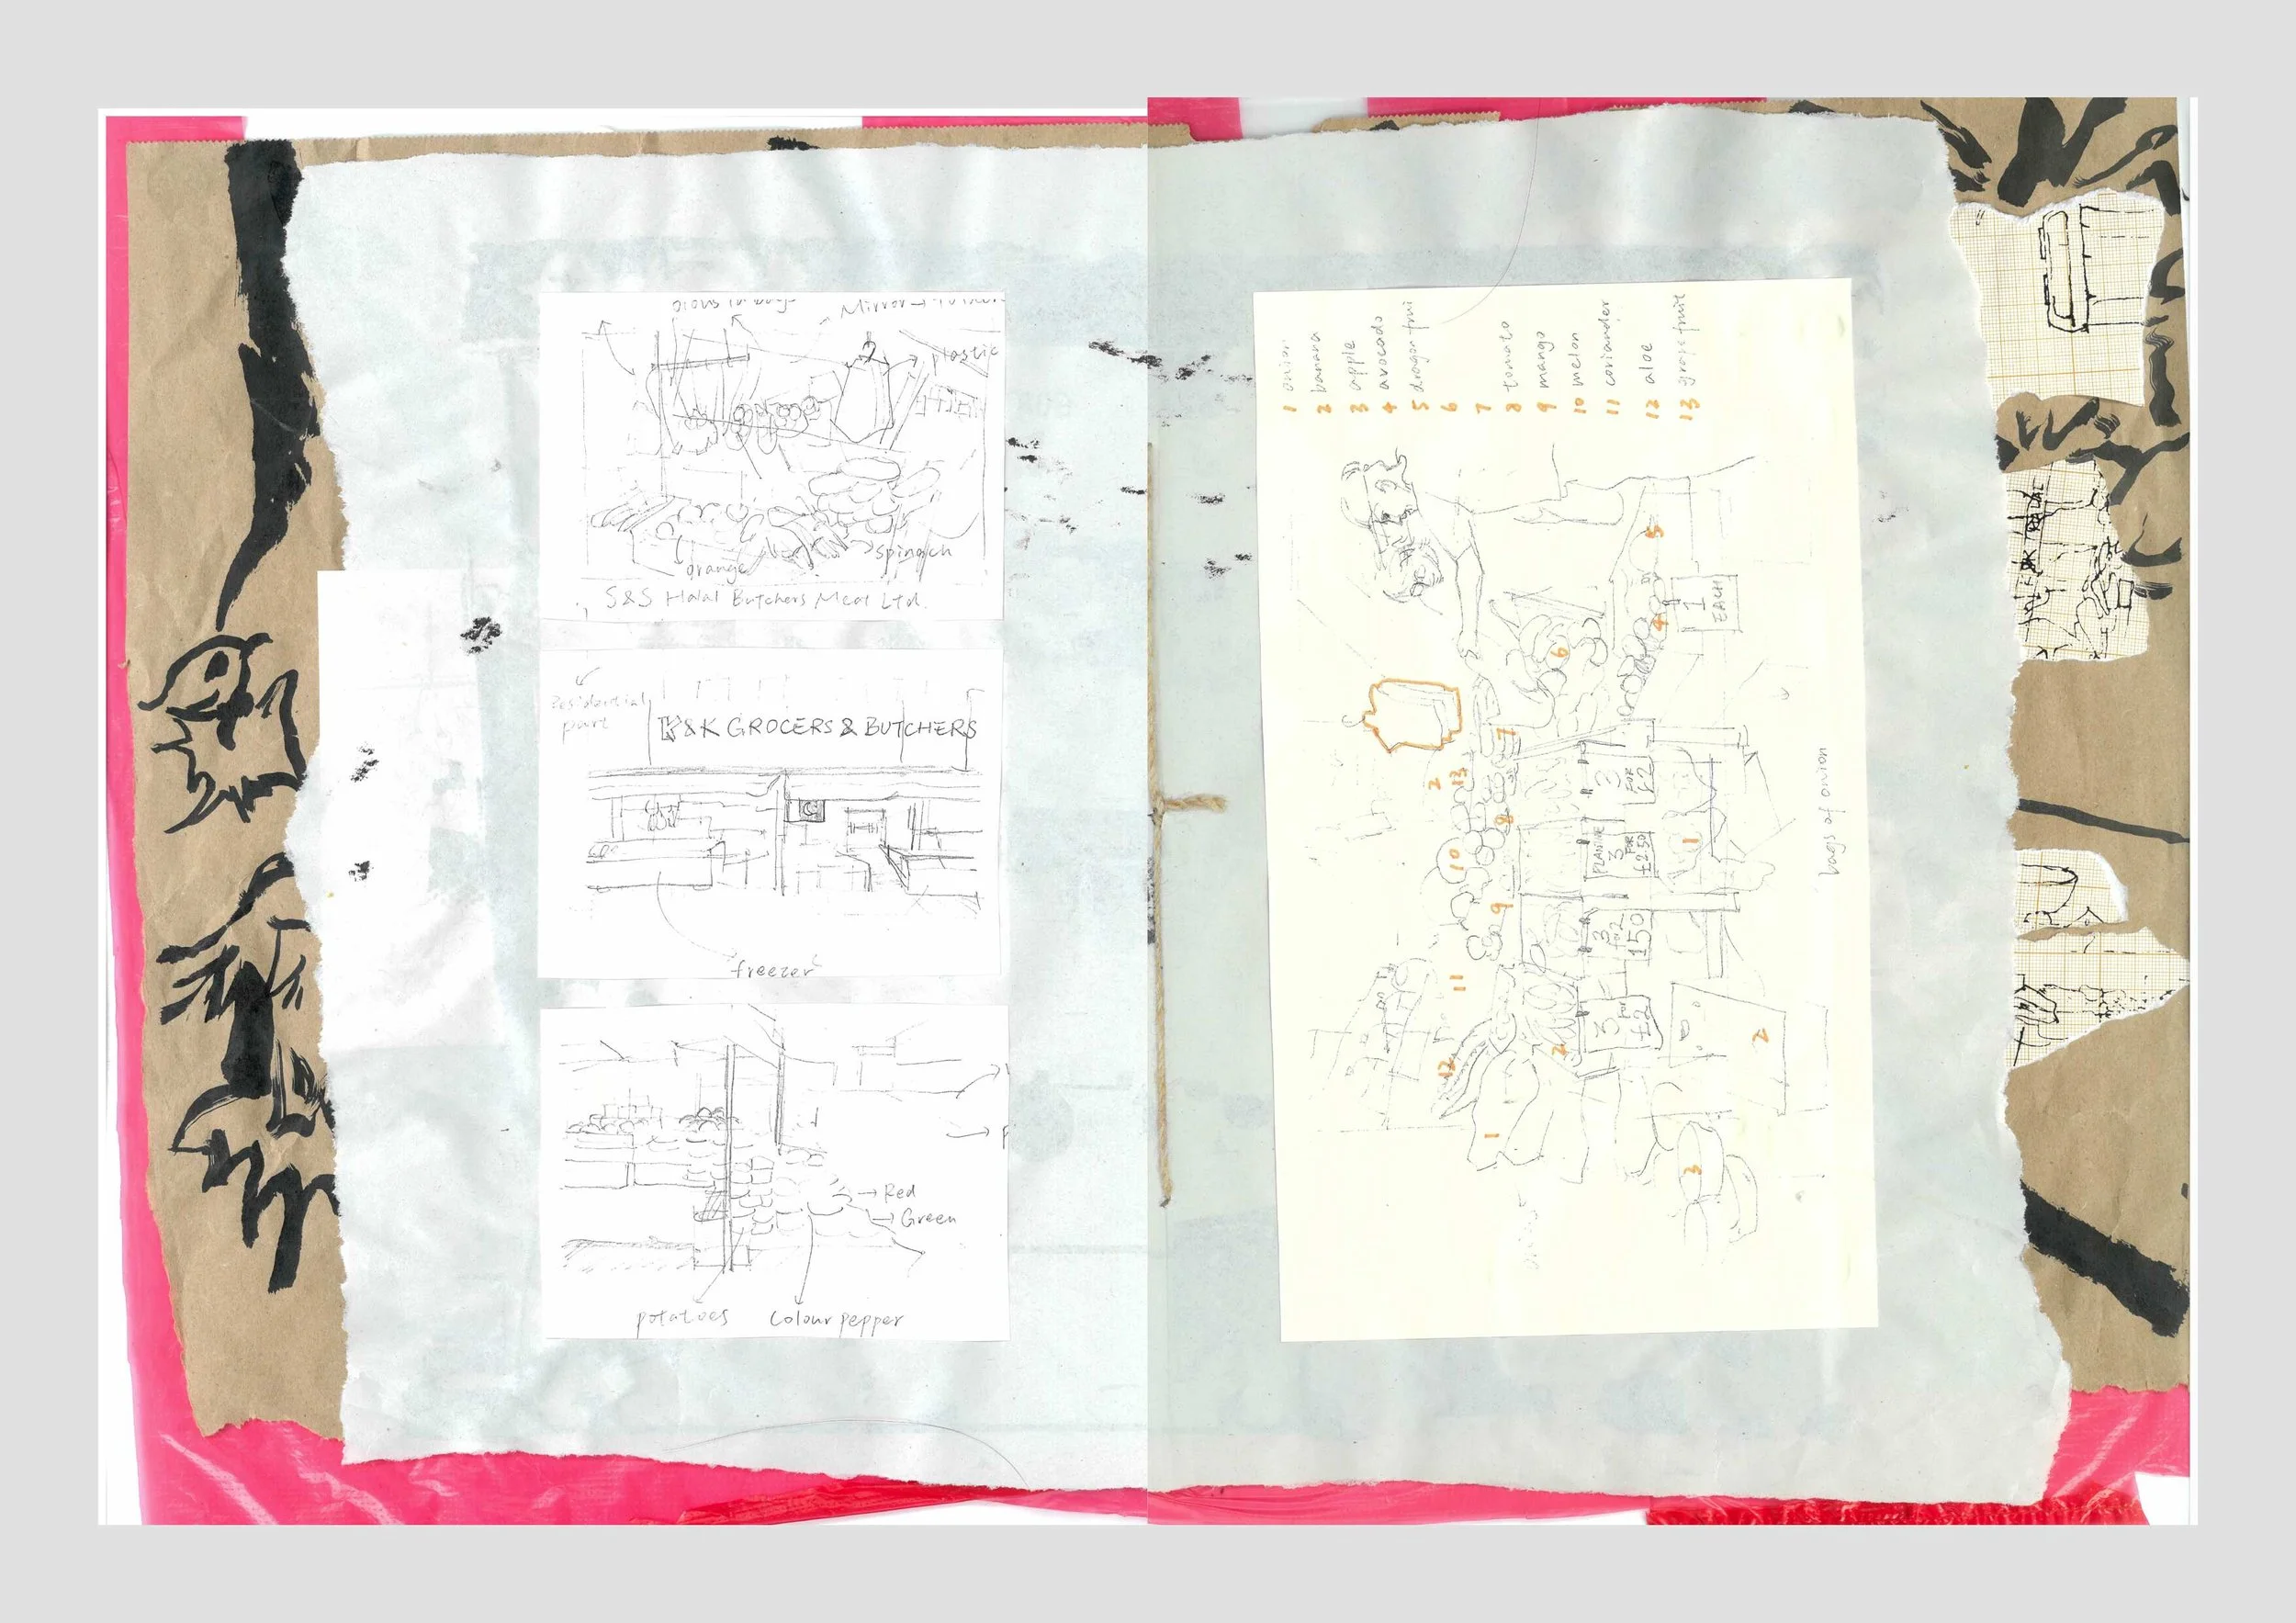 plastic
orange
spinach
S&S Halal Butchers Meat Ltd.
Residential
part
K&K GROCERS & BUTCHERS
freezer
Red
Green
potatoes
Colour pepper
1 onion
2 banana
3 apple
4 avocado
5 dragon fruit
6
7
8 tomato
9 mango
10 melon
11 coriander
12 aloe
13 grape fruit
5
4
1
EACH
6
7
2
13
8
10
9
11
12
2
1
3
FOR
£2
3
FOR
£2.50
3
FOR
150
3
FOR
£2
1
2
3
bags of onion